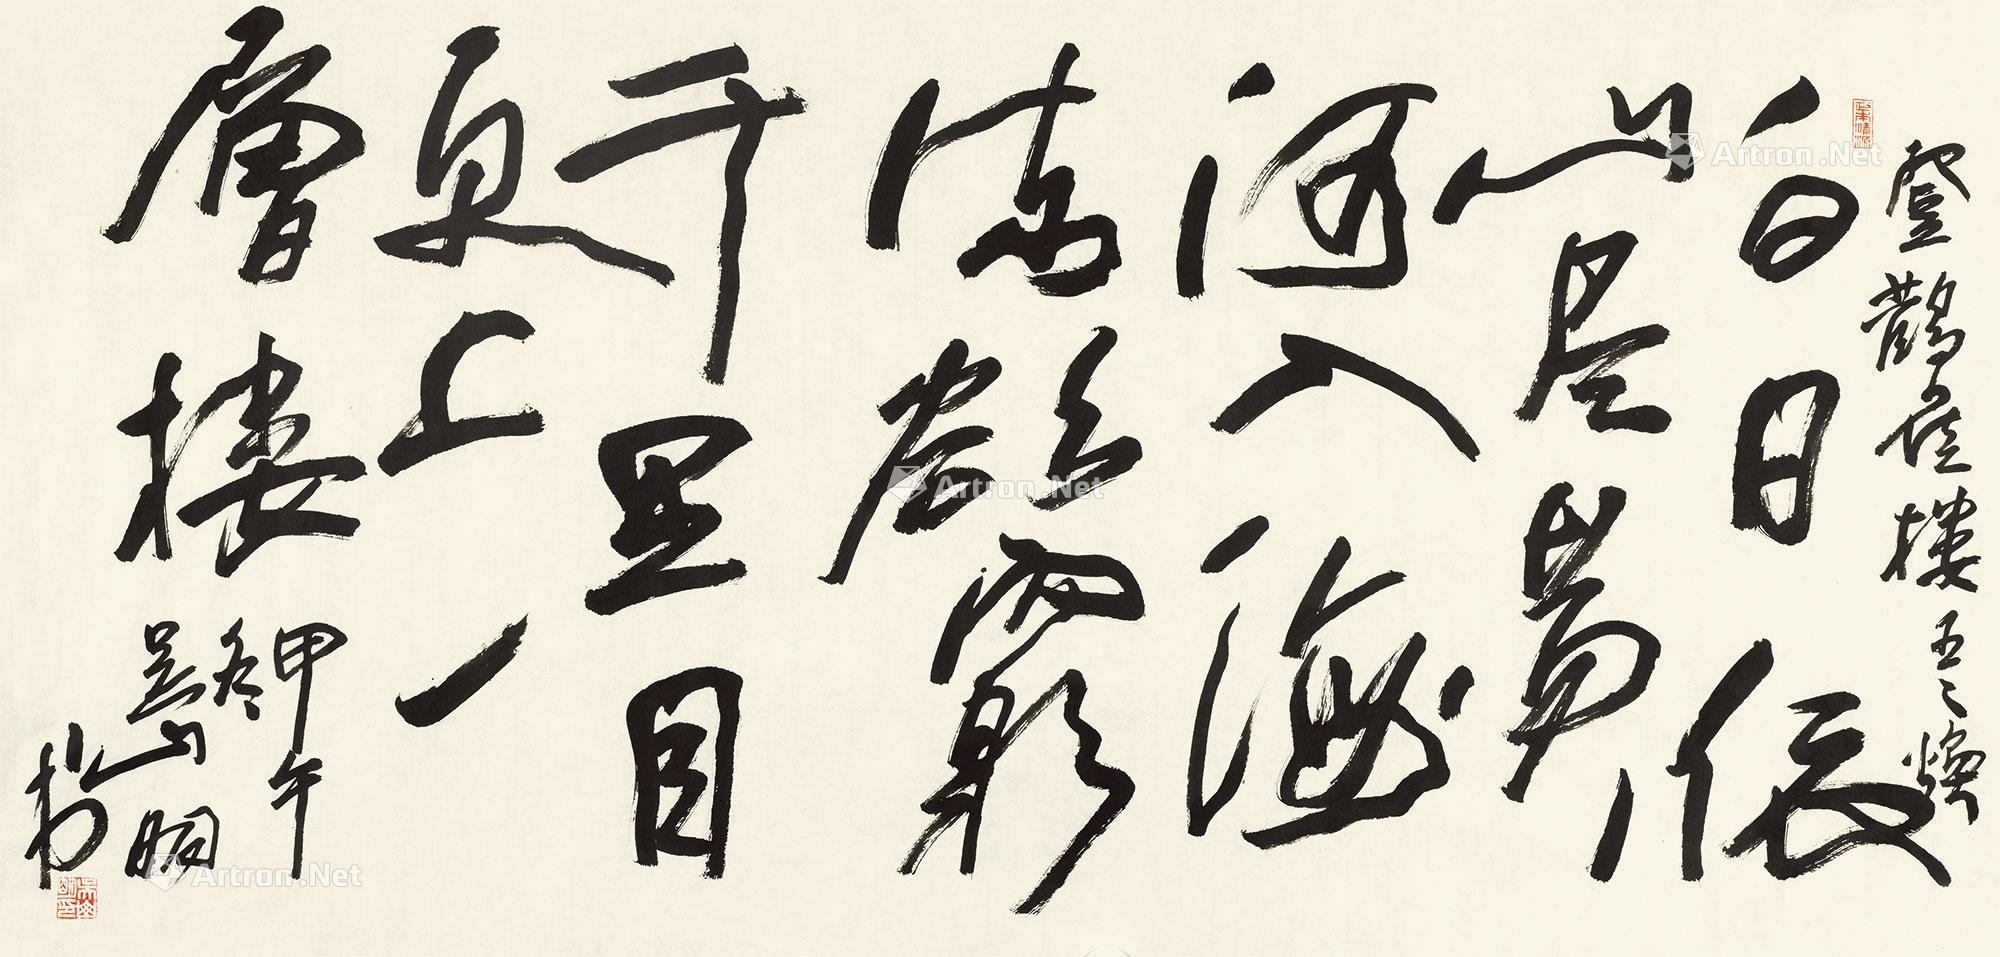 登鹳雀樓 王之焕
白日依
山尽黄
河入海
流欲窮
千里目
更上一
層樓
甲午
冬
吴山明
书
Artron.Net
Artron.Net
Artron.Net